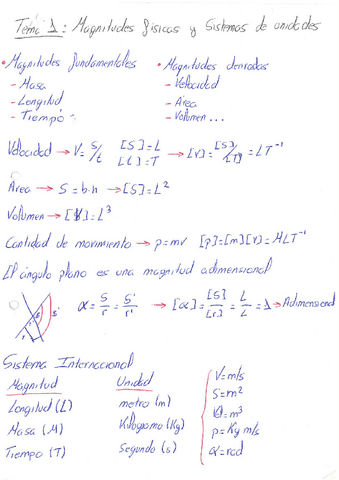 Tema 1: Magnitudes físicas y Sistemas de unidades
• Magnitudes fundamentales
- Masa
- Longitud
- Tiempo
• Magnitudes derivadas
- Velocidad
- Área
- Volumen...
Velocidad → V = S/t [S] = L [t] = T → [v] = [S]/[T] = LT⁻¹
Área → S = b·h → [S] = L²
Volumen → [V] = L³
Cantidad de movimiento → p = mv [p] = [m][v] = MLT⁻¹
El ángulo plano es una magnitud adimensional
r s s'
α = S/r = S'/r' → [α] = [S]/[r] = L/L = 1 → Adimensional
Sistema Internacional
Magnitud Unidad
Longitud (L) metro (m)
Masa (M) Kilogramo (Kg)
Tiempo (T) Segundo (s)
V = m/s
S = m²
V = m³
p = Kg m/s
α = rad